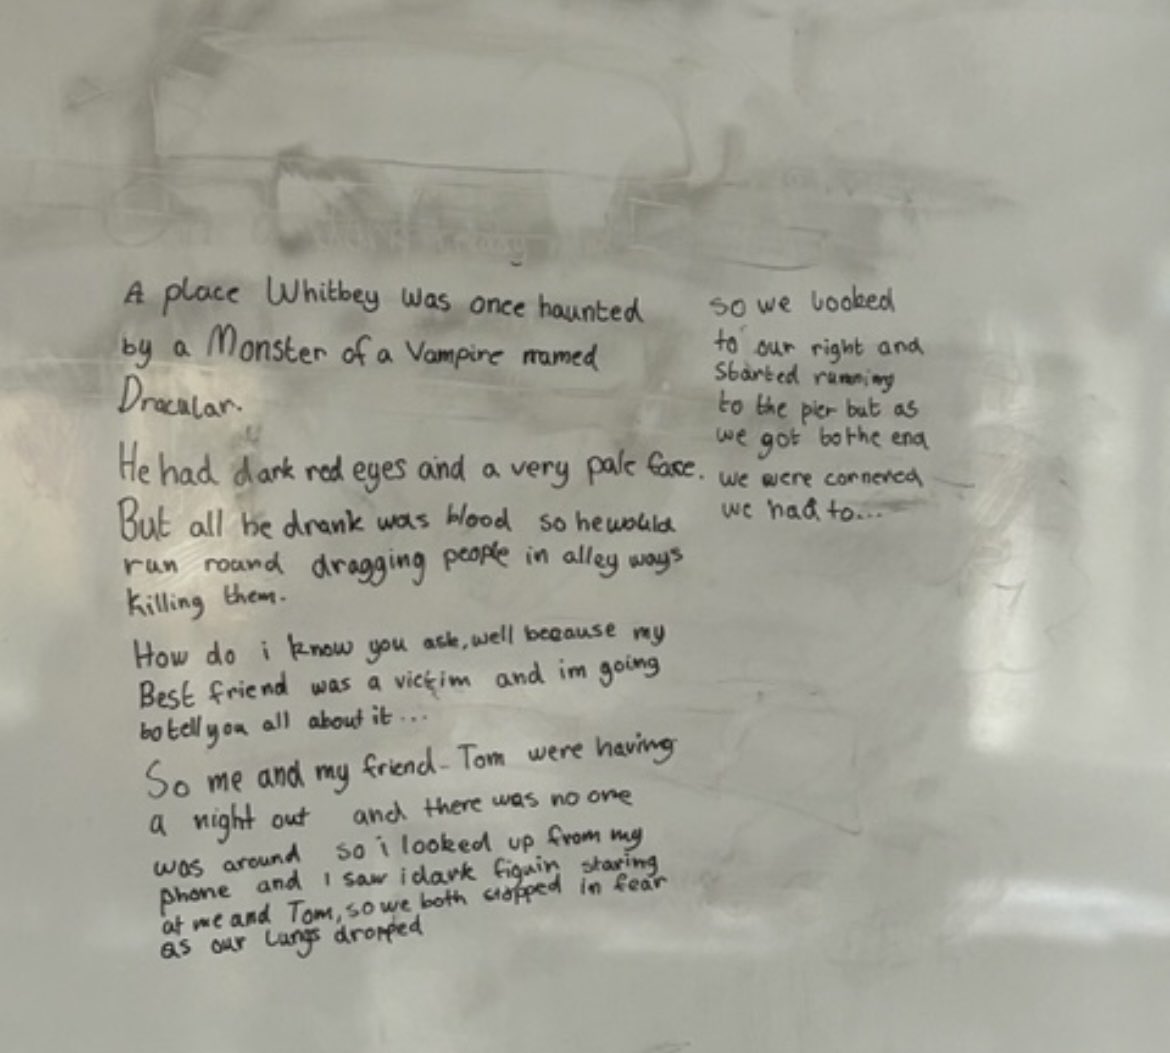 A place Whitbey was once haunted
by a Monster of a Vampire named
Dracular.
He had dark red eyes and a very pale face.
But all he drank was blood so he would
run round dragging people in alley ways
killing them.
How do i know you ask, well because my
Best friend was a victim and im going
to tell you all about it...
So me and my friend - Tom were having
a night out and there was no one
was around so i looked up from my
phone and I saw i dark figuin staring
at me and Tom, so we both stopped in fear
as our Lungs dropped
so we looked
to our right and
Started running
to the pier but as
we got to the end
we were cornered
we had to...